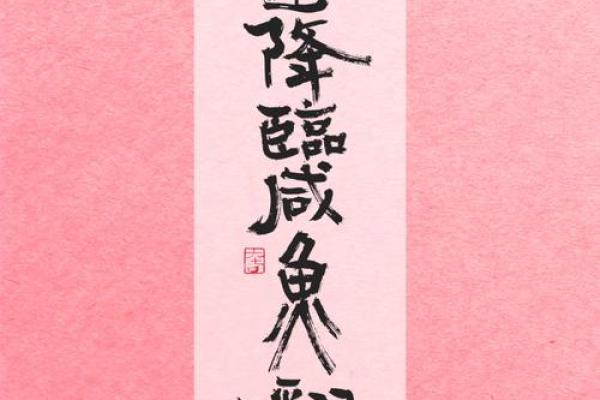 降臨咸魚